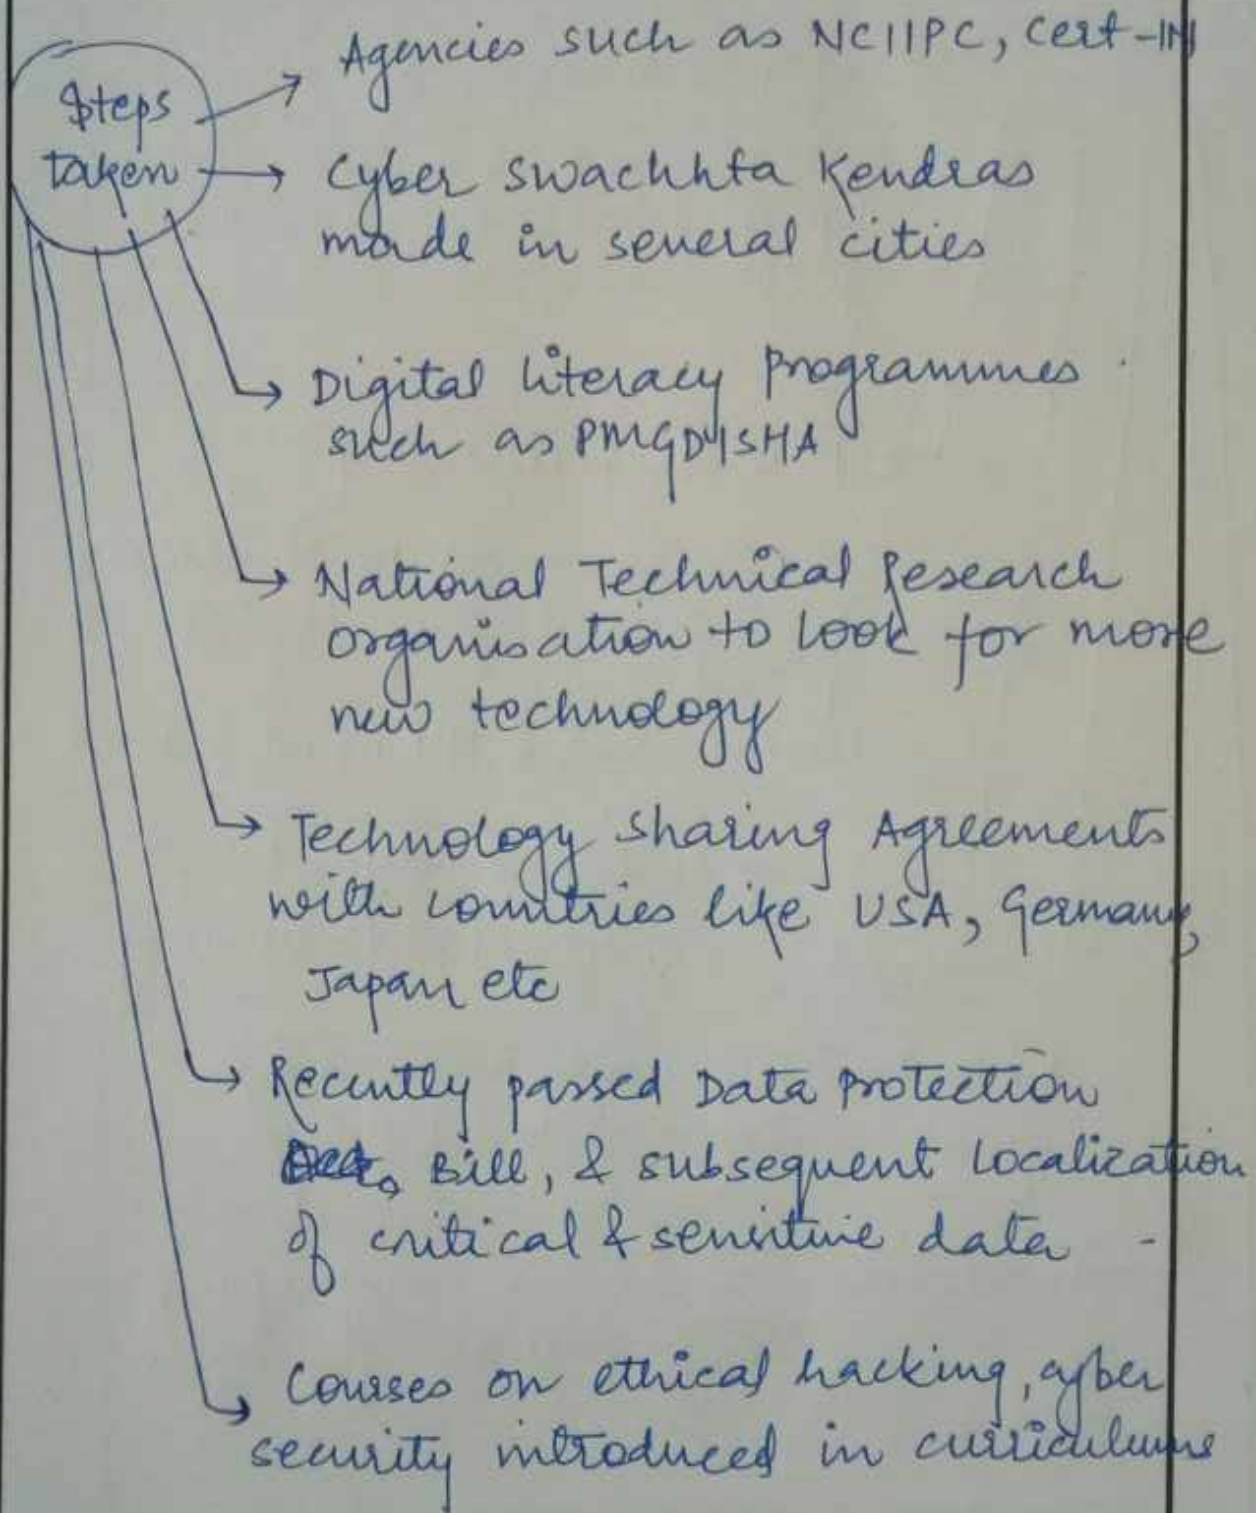 Steps
taken
Agencies such as NCIIPC, Cert-IN
Cyber Swachhta Kendras
made in several cities
Digital literacy Programmes
such as PMGDISHA
National Technical Research
organisation to look for more
new technology
Technology Sharing Agreements
with countries like USA, Germany,
Japan etc
Recently passed Data Protection
Bill, & subsequent localization
of critical & sensitive data -
Courses on ethical hacking, cyber
security introduced in curriculums